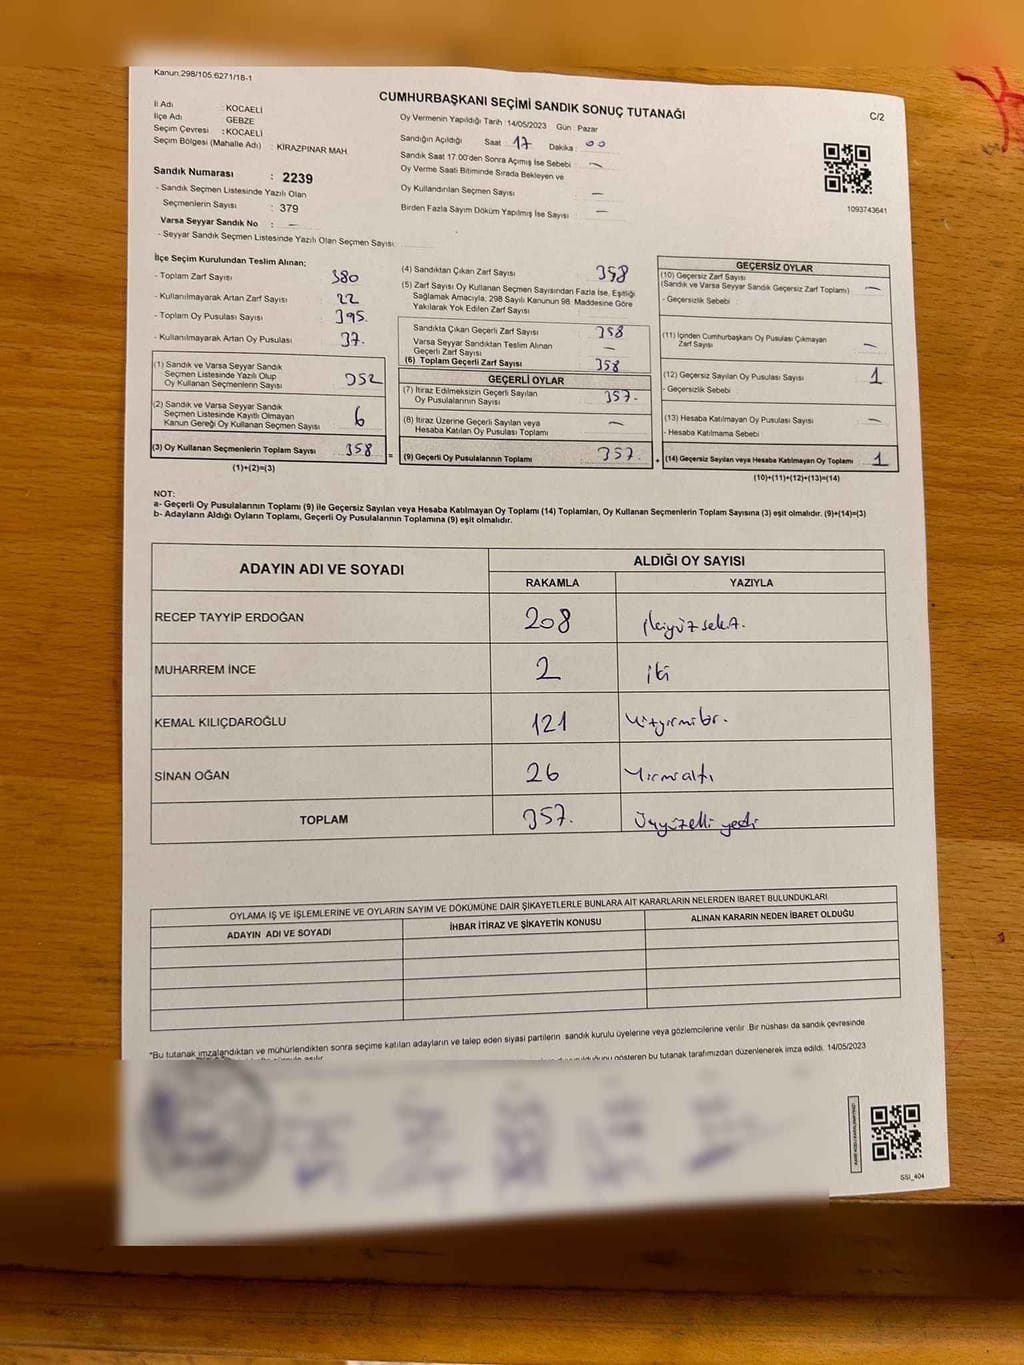 Kanun:298/105,6271/18-1
CUMHURBAŞKANI SEÇİMİ SANDIK SONUÇ TUTANAĞI
C/2
İl Adı : KOCAELİ
İlçe Adı GEBZE
Seçim Çevresi : KOCAELİ
Seçim Bölgesi (Mahalle Adı) : KİRAZPINAR MAH.
Sandık Numarası : 2239
- Sandık Seçmen Listesinde Yazılı Olan
Seçmenlerin Sayısı : 379
Varsa Seyyar Sandık No : —
- Seyyar Sandık Seçmen Listesinde Yazılı Olan Seçmen Sayısı:
Oy Vermenin Yapıldığı Tarih : 14/05/2023 Gün : Pazar
Sandığın Açıldığı Saat : 17 Dakika : 00
Sandık Saat 17.00'den Sonra Açımış İse Sebebi : —
Oy Verme Saati Bitiminde Sırada Bekleyen ve
Oy Kullandırılan Seçmen Sayısı —
Birden Fazla Sayım Döküm Yapılmış İse Sayısı : —
1093743641
İlçe Seçim Kurulundan Teslim Alınan;
- Toplam Zarf Sayısı 380
- Kullanılmayarak Artan Zarf Sayısı 22
- Toplam Oy Pusulası Sayısı 395.
- Kullanılmayarak Artan Oy Pusulası 37.
(1) Sandık ve Varsa Seyyar Sandık
Seçmen Listesinde Yazılı Olup
Oy Kullanan Seçmenlerin Sayısı 352
(2) Sandık ve Varsa Seyyar Sandık
Seçmen Listesinde Kayıtlı Olmayan
Kanun Gereği Oy Kullanan Seçmen Sayısı 6
(3) Oy Kullanan Seçmenlerin Toplam Sayısı 358
(1)+(2)=(3)
(4) Sandıktan Çıkan Zarf Sayısı 358
(5) Zarf Sayısı Oy Kullanan Seçmen Sayısından Fazla İse, Eşitliği
Sağlamak Amacıyla; 298 Sayılı Kanunun 98. Maddesine Göre
Yakılarak Yok Edilen Zarf Sayısı
Sandıkta Çıkan Geçerli Zarf Sayısı 358
Varsa Seyyar Sandıktan Teslim Alınan
Geçerli Zarf Sayısı —
(6) Toplam Geçerli Zarf Sayısı 358
GEÇERLİ OYLAR
(7) İtiraz Edilmeksizin Geçerli Sayılan
Oy Pusulalarının Sayısı 357.
(8) İtiraz Üzerine Geçerli Sayılan veya
Hesaba Katılan Oy Pusulası Toplamı —
= (9) Geçerli Oy Pusulalarının Toplamı 357.
GEÇERSİZ OYLAR
(10) Geçersiz Zarf Sayısı
(Sandık ve Varsa Seyyar Sandık Geçersiz Zarf Toplamı) —
- Geçersizlik Sebebi
(11) İçinden Cumhurbaşkanı Oy Pusulası Çıkmayan
Zarf Sayısı —
(12) Geçersiz Sayılan Oy Pusulası Sayısı 1
- Geçersizlik Sebebi
(13) Hesaba Katılmayan Oy Pusulası Sayısı —
- Hesaba Katılmama Sebebi
+ (14) Geçersiz Sayılan veya Hesaba Katılmayan Oy Toplamı 1
(10)+(11)+(12)+(13)=(14)
NOT:
a- Geçerli Oy Pusulalarının Toplamı (9) ile Geçersiz Sayılan veya Hesaba Katılmayan Oy Toplamı (14) Toplamları, Oy Kullanan Seçmenlerin Toplam Sayısına (3) eşit olmalıdır. (9)+(14)=(3)
b- Adayların Aldığı Oyların Toplamı, Geçerli Oy Pusulalarının Toplamına (9) eşit olmalıdır.
ADAYIN ADI VE SOYADI ALDIĞI OY SAYISI
RAKAMLA YAZIYLA
RECEP TAYYİP ERDOĞAN 208 ikiyüzsekz.
MUHARREM İNCE 2 iki
KEMAL KILIÇDAROĞLU 121
SİNAN OĞAN 26 Yirmialtı
TOPLAM 357. Üçyüzelli yedi
OYLAMA İŞ VE İŞLEMLERİNE VE OYLARIN SAYIM VE DÖKÜMÜNE DAİR ŞİKAYETLERLE BUNLARA AİT KARARLARIN NELERDEN İBARET BULUNDUKLARI
ADAYIN ADI VE SOYADI İHBAR İTİRAZ VE ŞİKAYETİN KONUSU ALINAN KARARIN NEDEN İBARET OLDUĞU
*Bu tutanak imzalandıktan ve mühürlendikten sonra seçime katılan adayların ve talep eden siyasi partilerin sandık kurulu üyelerine veya gözlemcilerine verilir. Bir nüshası da sandık çevresinde
gösteren bu tutanak tarafımızdan düzenlenerek imza edildi. 14/05/2023
SSI_404